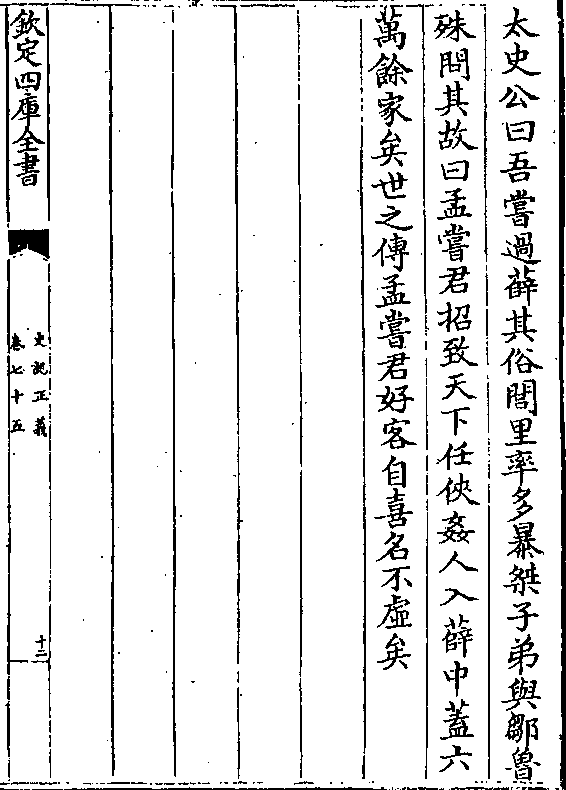 太史公曰吾嘗過薛其俗閭里率多暴桀子弟與鄒魯
殊問其故曰孟嘗君招致天下任俠姦人入薛中蓋六
萬餘家矣世之傳孟嘗君好客自喜名不虛矣
欽定四庫全書
史記正義
卷七十五
十二